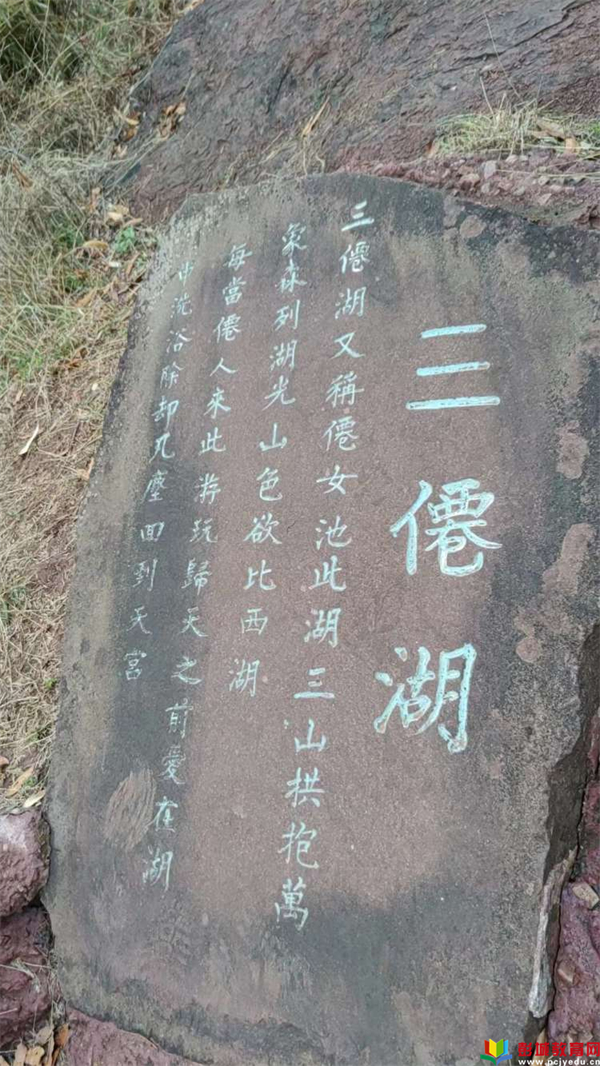 三僊湖
三僊湖又稱僊女池此湖三山拱抱萬
象森列湖光山色欲比西湖
每當僊人來此游玩歸天之前愛在湖
中洗浴除却凡塵回到天宮
www.pcjyedu.cn